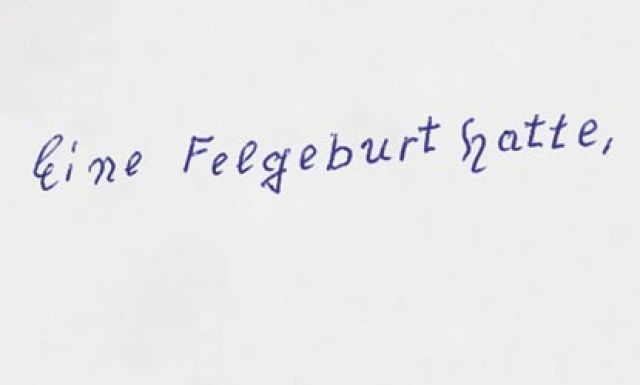 Eine Felgeburt hatte,